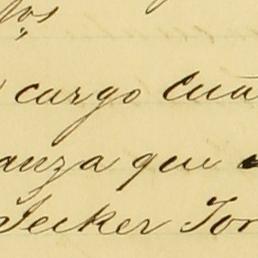 cargo cua
anza que
Jecker Tor